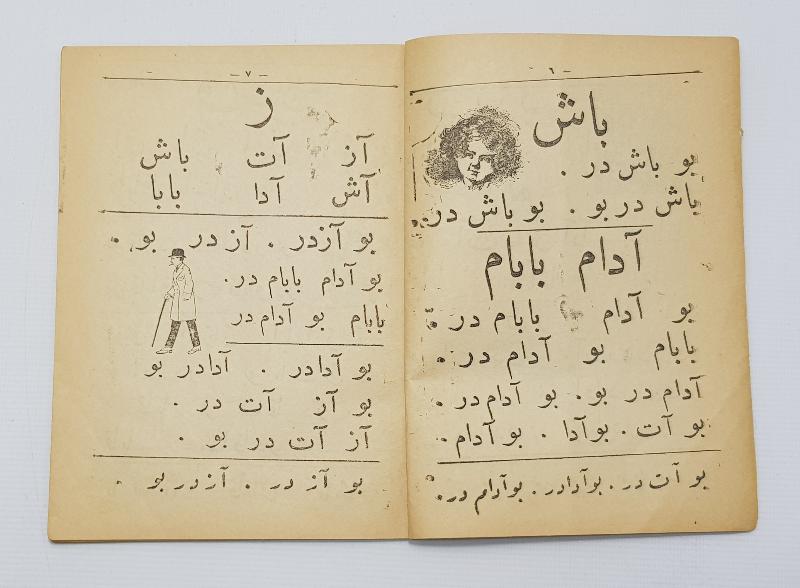 – ٦ –
باش
بو باش در .
باش در بو . بو باش در .
آدام بابام
بو آدام بابام در .
بابام بو آدام در .
آدام در بو . بو آدام در .
بو آت . بو آدا . بو آدام .
بو آت در . بو آدا در . بو آدام در .
– ٧ –
ز
آز آت باش
آش آدا بابا
بو آز در . آز در بو .
بو آدام بابام در .
بابام بو آدام در
بو آدا در . آدا در بو
بو آز آت در .
آز آت در بو .
بو آز در . آز در بو .